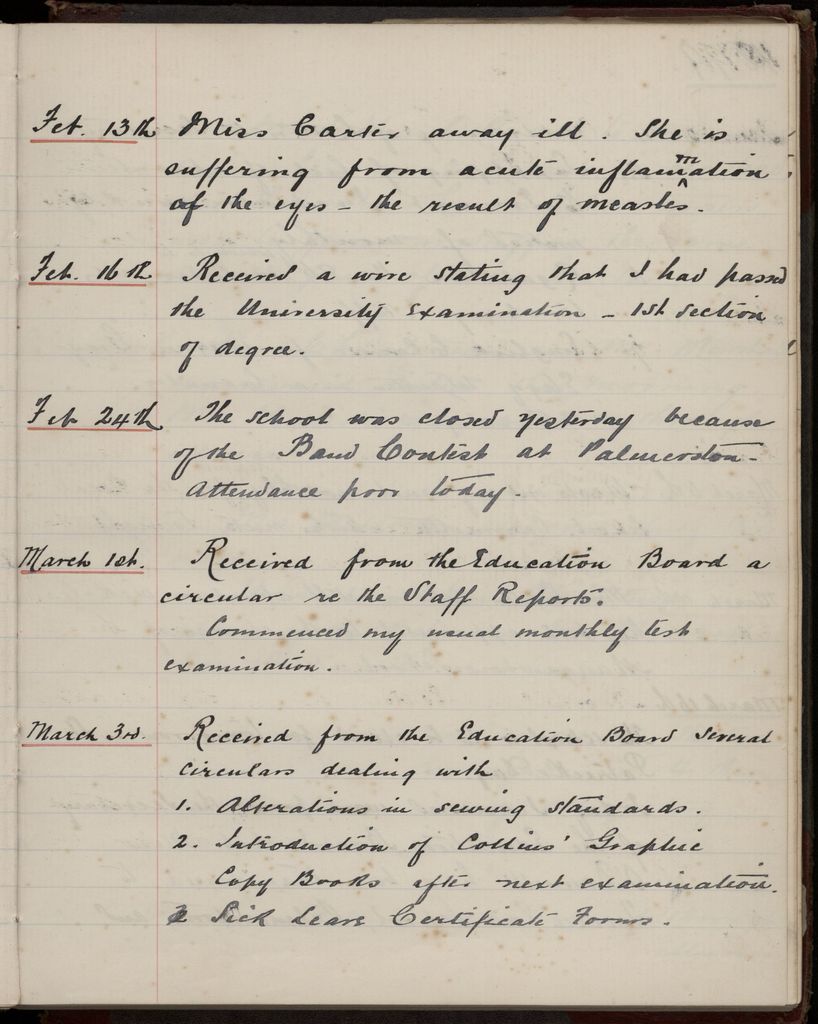 Feb. 13th Miss Carter away ill. She is
suffering from acute inflammation
of the eyes – the result of measles.
Feb. 16th Received a wire stating that I had passed
the University Examination – 1st Section
of degree.
Feb 24th The school was closed yesterday because
of the Band Contest at Palmerston–
Attendance poor today.
March 1st. Received from the Education Board a
circular re the Staff Reports.
Commenced my usual monthly test
examination.
March 3rd. Received from the Education Board several
circulars dealing with
1. Alterations in sewing standards.
2. Introduction of Collins' Graphic
Copy Books after next examination.
3 Sick Leave Certificate Forms.